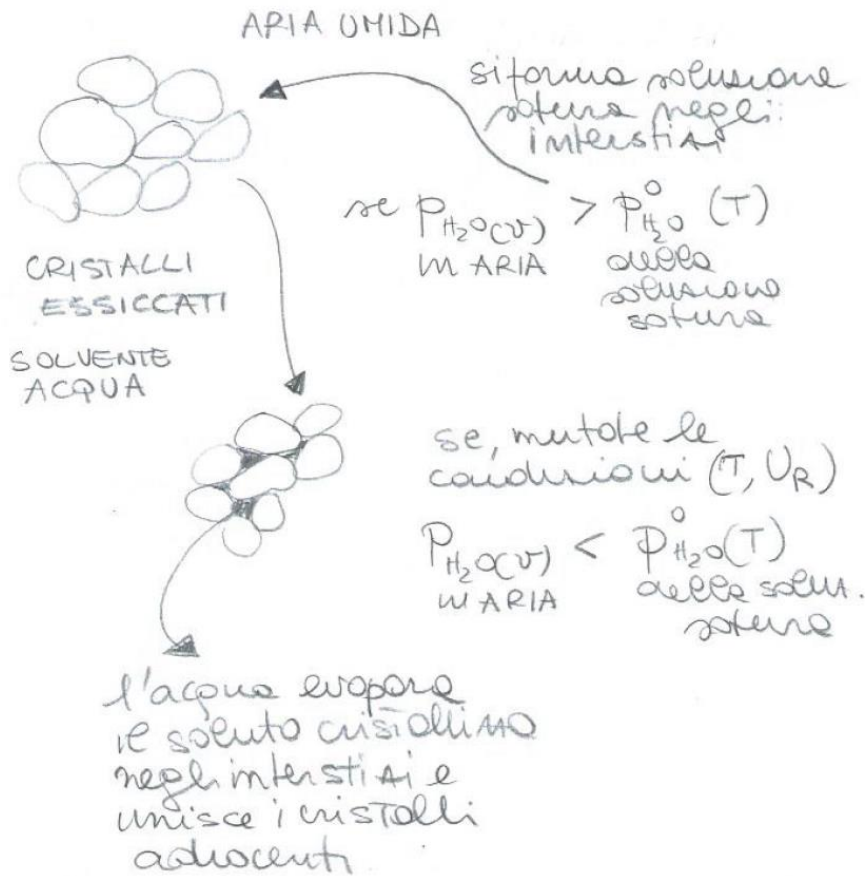 ARIA UMIDA
si forma soluzione
satura negli
interstizi
se P H₂O(v) > P° H₂O (T)
IN ARIA
della
soluzione
satura
CRISTALLI
ESSICCATI
SOLVENTE
ACQUA
se, mutate le
condizioni (T, U_R)
P H₂O(v) < P° H₂O (T)
IN ARIA
della solux.
satura
l'acqua evapora
il soluto cristallino
negli interstizi e
unisce i cristalli
adiacenti